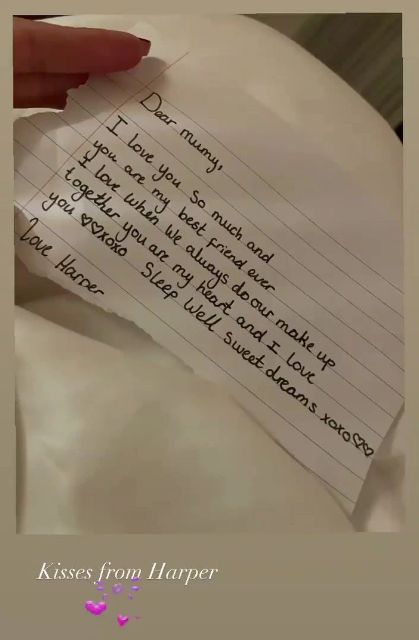 Dear mumy,
I love you so much and
you are my best friend ever
I love when we always do our make up
together you are my heart and I love
you ♡♡xoxo Sleep Well sweet dreams xoxo♡♡
love Harper
Kisses from Harper